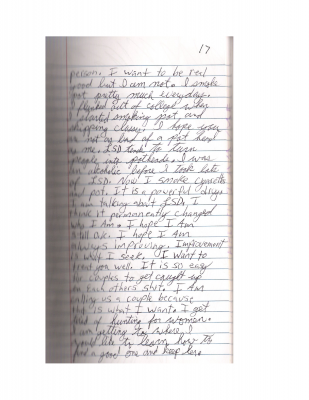 17
person. I want to be real
good but I am not. I smoke
pot pretty much everyday.
I flunked out of college when
I started smoking pot, and
skipping classes. I hope your
not as bad of a pot head
as me. LSD took to turn
people into potheads. I was
an alcoholic before I took lots
of LSD. Now I smoke
and pot. It is a powerful drug
I am talking about LSD. I
think it permanently changed
who I am. I hope I am
all over. I hope I am
always improving. Improvement
is what I seek. I want to
treat you well. It is so easy
for couples to get caught up
in each others shit. I am
calling us a couple because
that is what I want. I get
tired of hunting for women.
I am getting to where I
would like to learn how to
find a good one and keep her.